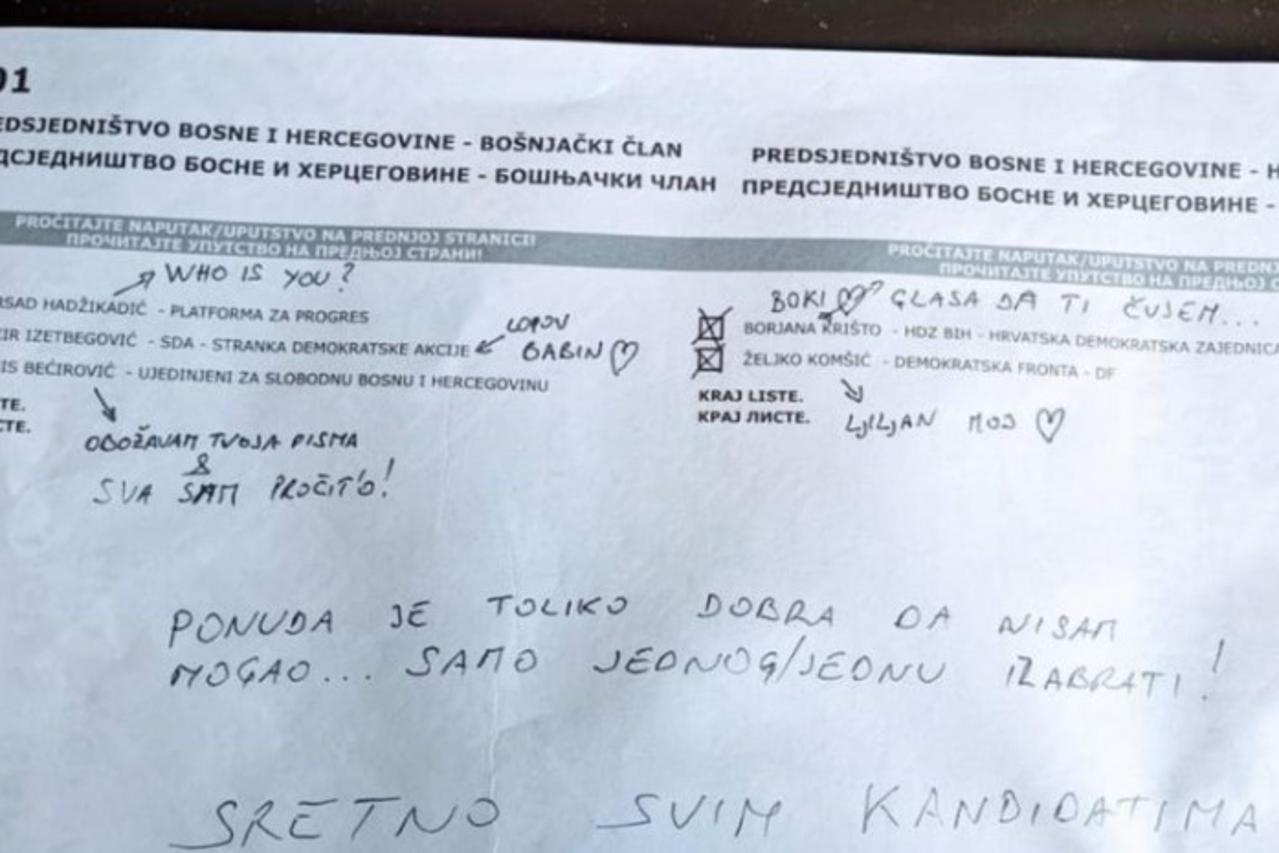 01
EDSJEDNIŠTVO BOSNE I HERCEGOVINE - BOŠNJAČKI ČLAN
ДСЈЕДНИШТВО БОСНЕ И ХЕРЦЕГОВИНЕ - БОШЊАЧКИ ЧЛАН
PROČITAJTE NAPUTAK/UPUTSTVO NA PREDNJOJ STRANICI!
ПРОЧИТАЈТЕ УПУТСТВО НА ПРЕДЊОЈ СТРАНИ!
WHO IS YOU?
RSAD HADŽIKADIĆ - PLATFORMA ZA PROGRES
LOPOV
CIR IZETBEGOVIĆ - SDA - STRANKA DEMOKRATSKE AKCIJE
BABIN ♡
IS BEĆIROVIĆ - UJEDINJENI ZA SLOBODNU BOSNU I HERCEGOVINU
TE.
СТЕ.
OBOŽAVAM TVOJA PISMA
&
SVA SAM PROČIT'O!
PREDSJEDNIŠTVO BOSNE I HERCEGOVINE - H
ПРЕДСЈЕДНИШТВО БОСНЕ И ХЕРЦЕГОВИНЕ -
PROČITAJTE NAPUTAK/UPUTSTVO NA PREDNJ
ПРОЧИТАЈТЕ УПУТСТВО НА ПРЕДЊОЈ С
BOKI ♡ GLASA DA TI ČUJEM...
BORJANA KRIŠTO - HDZ BIH - HRVATSKA DEMOKRATSKA ZAJEDNICA
ŽELJKO KOMŠIĆ - DEMOKRATSKA FRONTA - DF
KRAJ LISTE.
КРАЈ ЛИСТЕ.
LJILJAN MOJ ♡
PONUDA JE TOLIKO DOBRA DA NISAM
MOGAO... SAMO JEDNOG/JEDNU IZABRATI!
SRETNO SVIM KANDIDATIMA